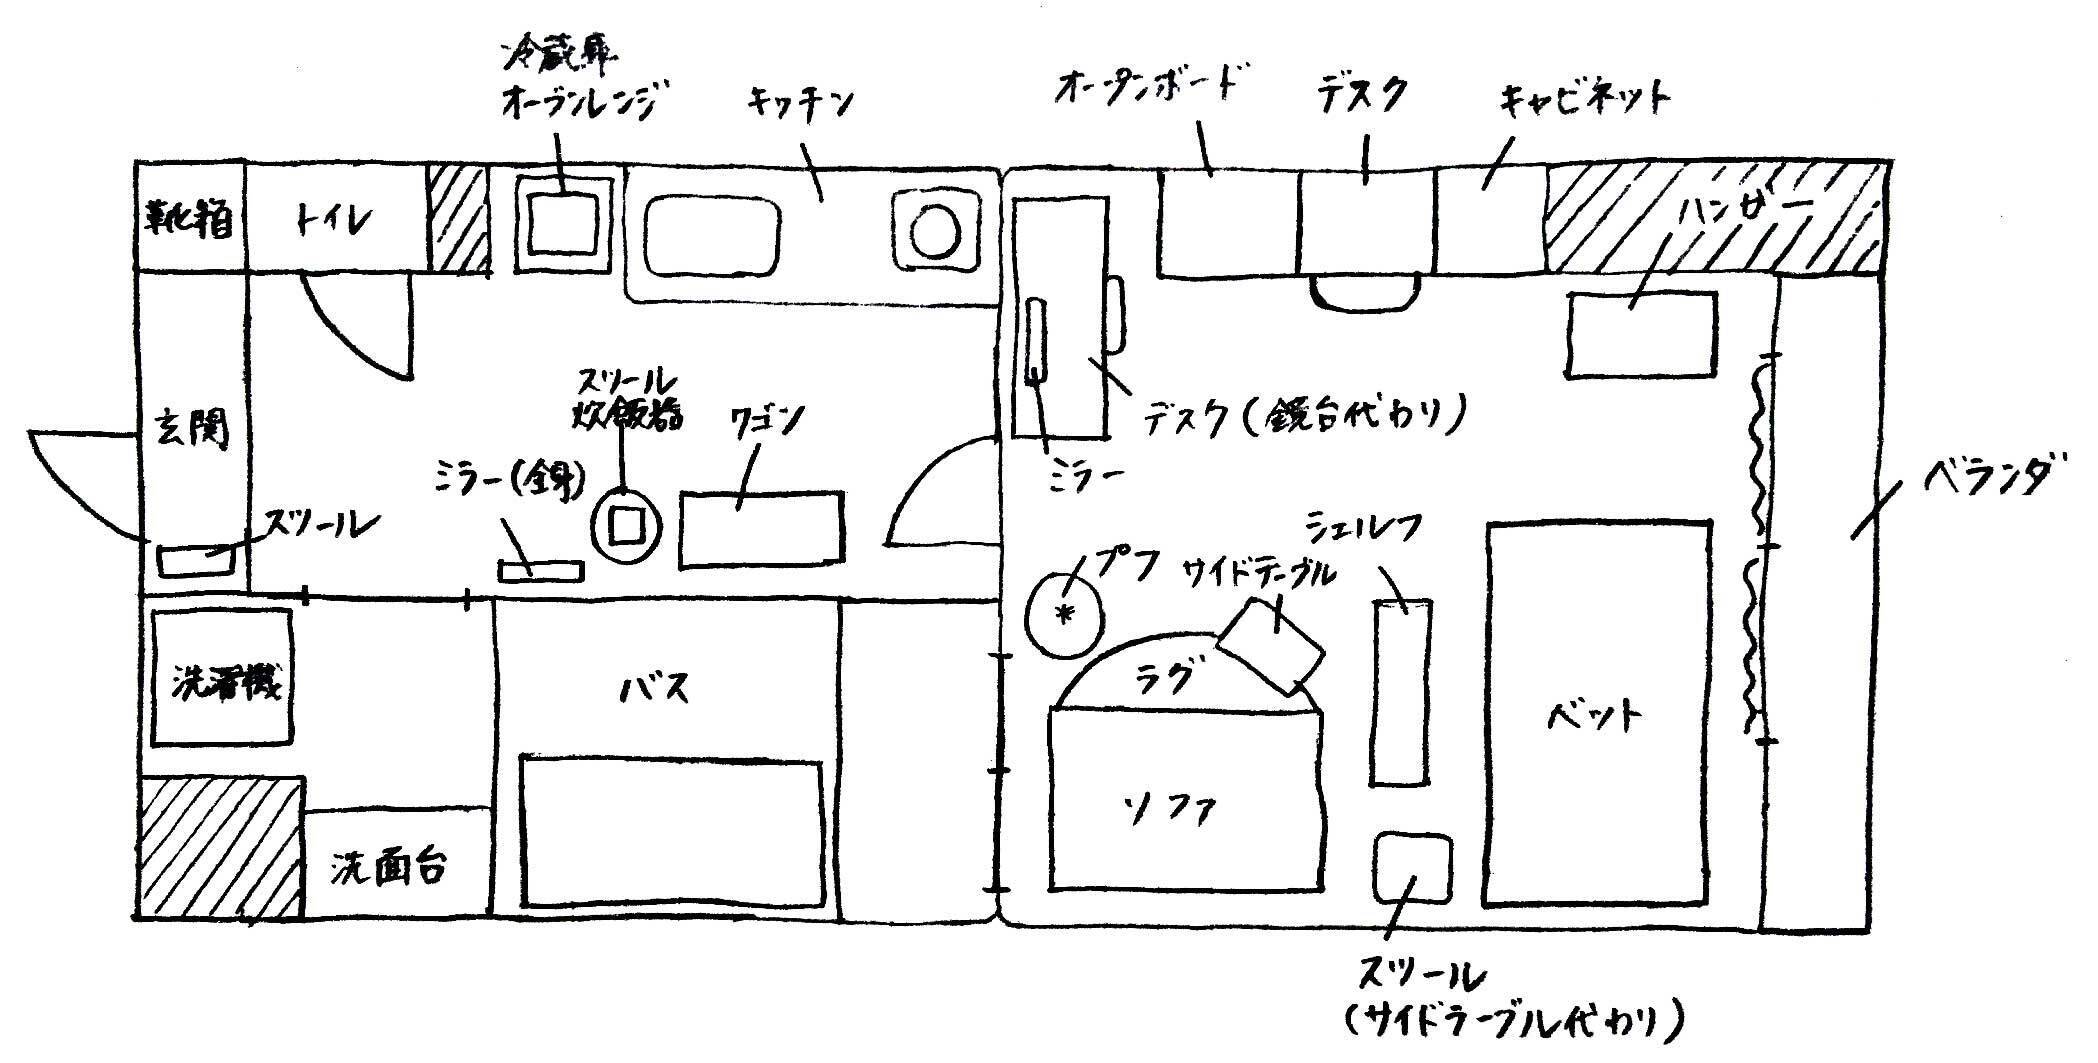 冷蔵庫
オーブンレンジ
キッチン
オープンボード
デスク
キャビネット
靴箱
トイレ
ハンガー
玄関
スツール
炊飯器
ワゴン
ミラー(全身)
スツール
デスク(鏡台代わり)
ミラー
ベランダ
プフ
サイドテーブル
シェルフ
ラグ
ソファ
ベット
洗濯機
バス
洗面台
スツール
(サイドテーブル代わり)